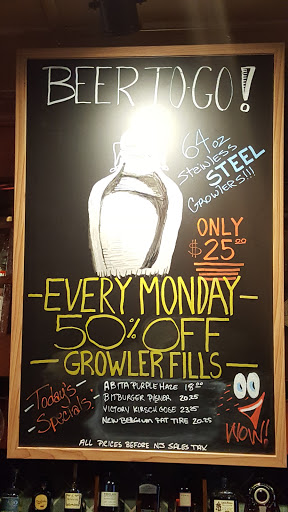 BEER TO-GO!
64 OZ
STAINLESS
STEEL
GROWLERS!!!
ONLY
$25.00
-EVERY MONDAY-
50% OFF
- GROWLER FILLS -
Today's
Specials:
ABITA PURPLE HAZE 18.00
BITBURGER PILSNER 20.25
VICTORY KIRSCH GOSE 23.25
NEW BELGIUM FAT TIRE 20.25
WOW!!
ALL PRICES BEFORE NJ SALES TAX